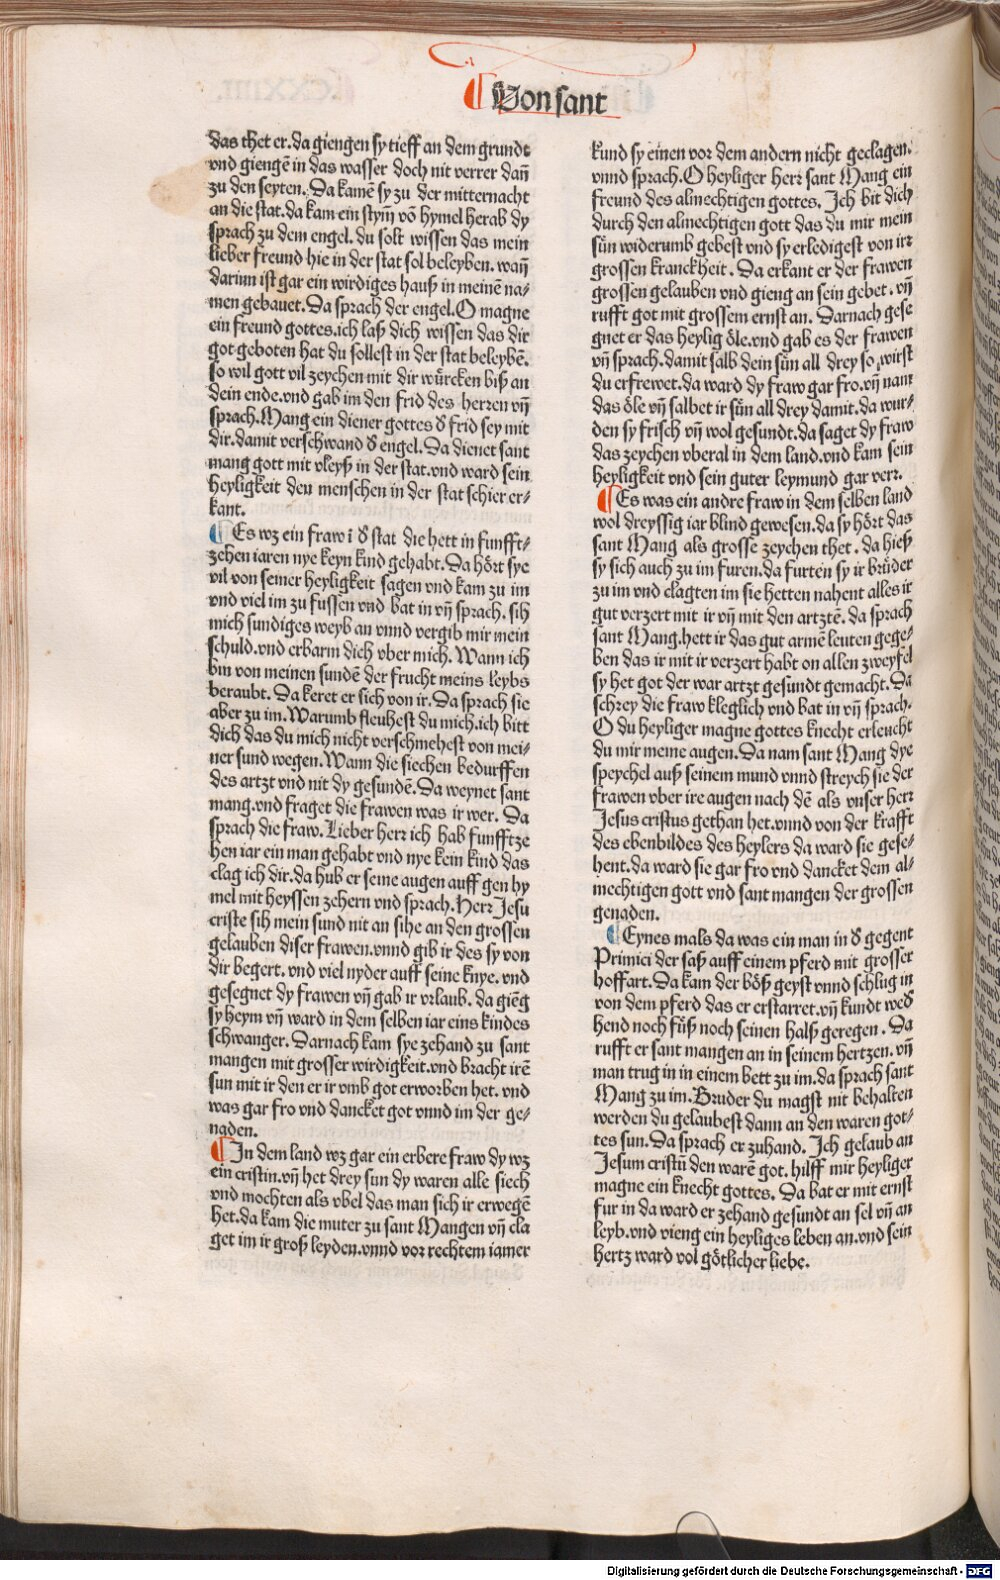 ¶ Von sant
das thet er.da giengen sy tieff an dem grundt
vnd giengē in das wasser doch nit verrer dañ
zu den seyten. Da kamē sy zu der mitternacht
an die stat.da kam ein stym̄ vō hymel herab dy
sprach zu dem engel. du solt wissen das mein
lieber freund hie in der stat sol beleyben. wañ
darinn ist gar ein wirdiges hauß in meinē na⸗
men gebauet. Da sprach der engel.O magne
ein freund gottes.ich laß dich wissen das dir
got geboten hat du sollest in der stat beleybē.
so wil gott vil zeychen mit dir wuͤrcken biß an
dein ende.vnd gab im den frid des herren vñ
sprach.Mang ein diener gottes ď frid sey mit
dir.damit verschwand ď engel. Da dienet sant
mang gott mit vleyß in der stat.vnd ward sein
heyligkeit den menschen in der stat schier er⸗
kant.
¶ Es wz ein fraw ī ď stat die hett in funfft⸗
zehen iaren nye keyn kind gehabt. Da hört sye
vil von seiner heyligkeit sagen vnd kam zu im
vnd viel im zu fussen vnd bat in vñ sprach. sih
mich sundiges weyb an vnnd vergib mir mein
schuld.vnd erbarm dich vber mich. Wann ich
bin von meinen sundē der frucht meins leybs
beraubt. Da keret er sich von ir. Da sprach sie
aber zu im.Warumb fleuhest du mich.ich bitt
dich das du mich nicht verschmehest von mei⸗
ner sund wegen. Wann die siechen bedurffen
des artzt vnd nit dy gesundē. Da weynet sant
mang.vnd fraget die frawen was ir wer. Da
sprach die fraw. Lieber herr ich hab funfftze
hen iar ein man gehabt vnd nye kein kind das
clag ich dir.da hub er seine augen auff gen hy
mel mit heyssen zehern vnd sprach. Herr Jesu
criste sih mein sund nit an sihe an den grossen
gelauben diser frawen.vnnd gib ir des sy von
dir begert. vnd viel nyder auff seine knye. vnd
gesegnet dy frawen vñ gab ir vrlaub. da giēg
sy heym vñ ward in dem selben iar eins kindes
schwanger. Darnach kam sye zehand zu sant
mangen mit grosser wirdigkeit.vnd bracht irē
sun mit ir den er ir vmb got erworben het. vnd
was gar fro vnd dancket got vnnd im der ge⸗
naden.
¶ In dem land wz gar ein erbere fraw dy wz
ein cristin.vñ het drey sun dy waren alle siech
vnd mochten als vbel das man sich ir erwegē
het.da kam die muter zu sant Mangen vñ cla
get im ir groß leyden.vnnd vor rechtem iamer
kund sy einen vor dem andern nicht geclagen.
vnnd sprach.O heyliger herr sant Mang ein
freund des almechtigen gottes. Ich bit dich
durch den almechtigen gott das du mir mein
sün widerumb gebest vnd sy erledigest von irr
grossen kranckheit. Da erkant er der frawen
grossen gelauben vnd gieng an sein gebet. vñ
rufft got mit grossem ernst an. Darnach gese
gnet er das heylig öle.vnd gab es der frawen
vñ sprach.damit salb dein sün all drey so wirst
du erfrewet.da ward dy fraw gar fro.vñ nam
das öle vñ salbet ir sün all drey damit.da wur⸗
den sy frisch vñ wol gesundt.da saget dy fraw
das zeychen vberal in dem land.vnd kam sein
heyligkeit vnd sein guter leymund gar verr.
¶ Es was ein andre fraw in dem selben land
wol dreyssig iar blind gewesen.da sy hört das
sant Mang als grosse zeychen thet. da hieß
sy sich auch zu im furen.da furten sy ir brüder
zu im vnd clagten im sie hetten nahent alles ir
gut verzert mit ir vñ mit den artztē. da sprach
sant Mang.hett ir das gut armē leuten gege⸗
ben das ir mit ir verzert habt on allen zweyfel
sy het got der war artzt gesundt gemacht. Da
schrey die fraw kleglich vnd bat in vñ sprach.
O du heyliger magne gottes knecht erleucht
du mir meine augen. Da nam sant Mang dye
speychel auß seinem mund vnnd streych sie der
frawen vber ire augen nach dē als vnser herr
Jesus cristus gethan het.vnnd von der krafft
des ebenbildes des heylers da ward sie gese⸗
hent.da ward sie gar fro vnd dancket dem al⸗
mechtigen gott vnd sant mangen der grossen
genaden.
¶ Eynes mals da was ein man in ď gegent
Primici der saß auff einem pferd mit grosser
hoffart. Da kam der böß geyst vnnd schlug in
von dem pferd das er erstarret.vñ kundt weď
hend noch füß noch seinen halß geregen. Da
rufft er sant mangen an in seinem hertzen. vñ
man trug in in einem bett zu im.da sprach sant
Mang zu im.Bruder du magst nit behalten
werden du gelaubest dann an den waren got⸗
tes sun. Da sprach er zuhand. Ich gelaub an
Jesum cristū den warē got. hilff mir heyliger
magne ein knecht gottes. Da bat er mit ernst
fur in da ward er zehand gesundt an sel vñ an
leyb.vnd vieng ein heyliges leben an.vnd sein
hertz ward vol götlicher liebe.
Digitalisierung gefördert durch die Deutsche Forschungsgemeinschaft - DFG